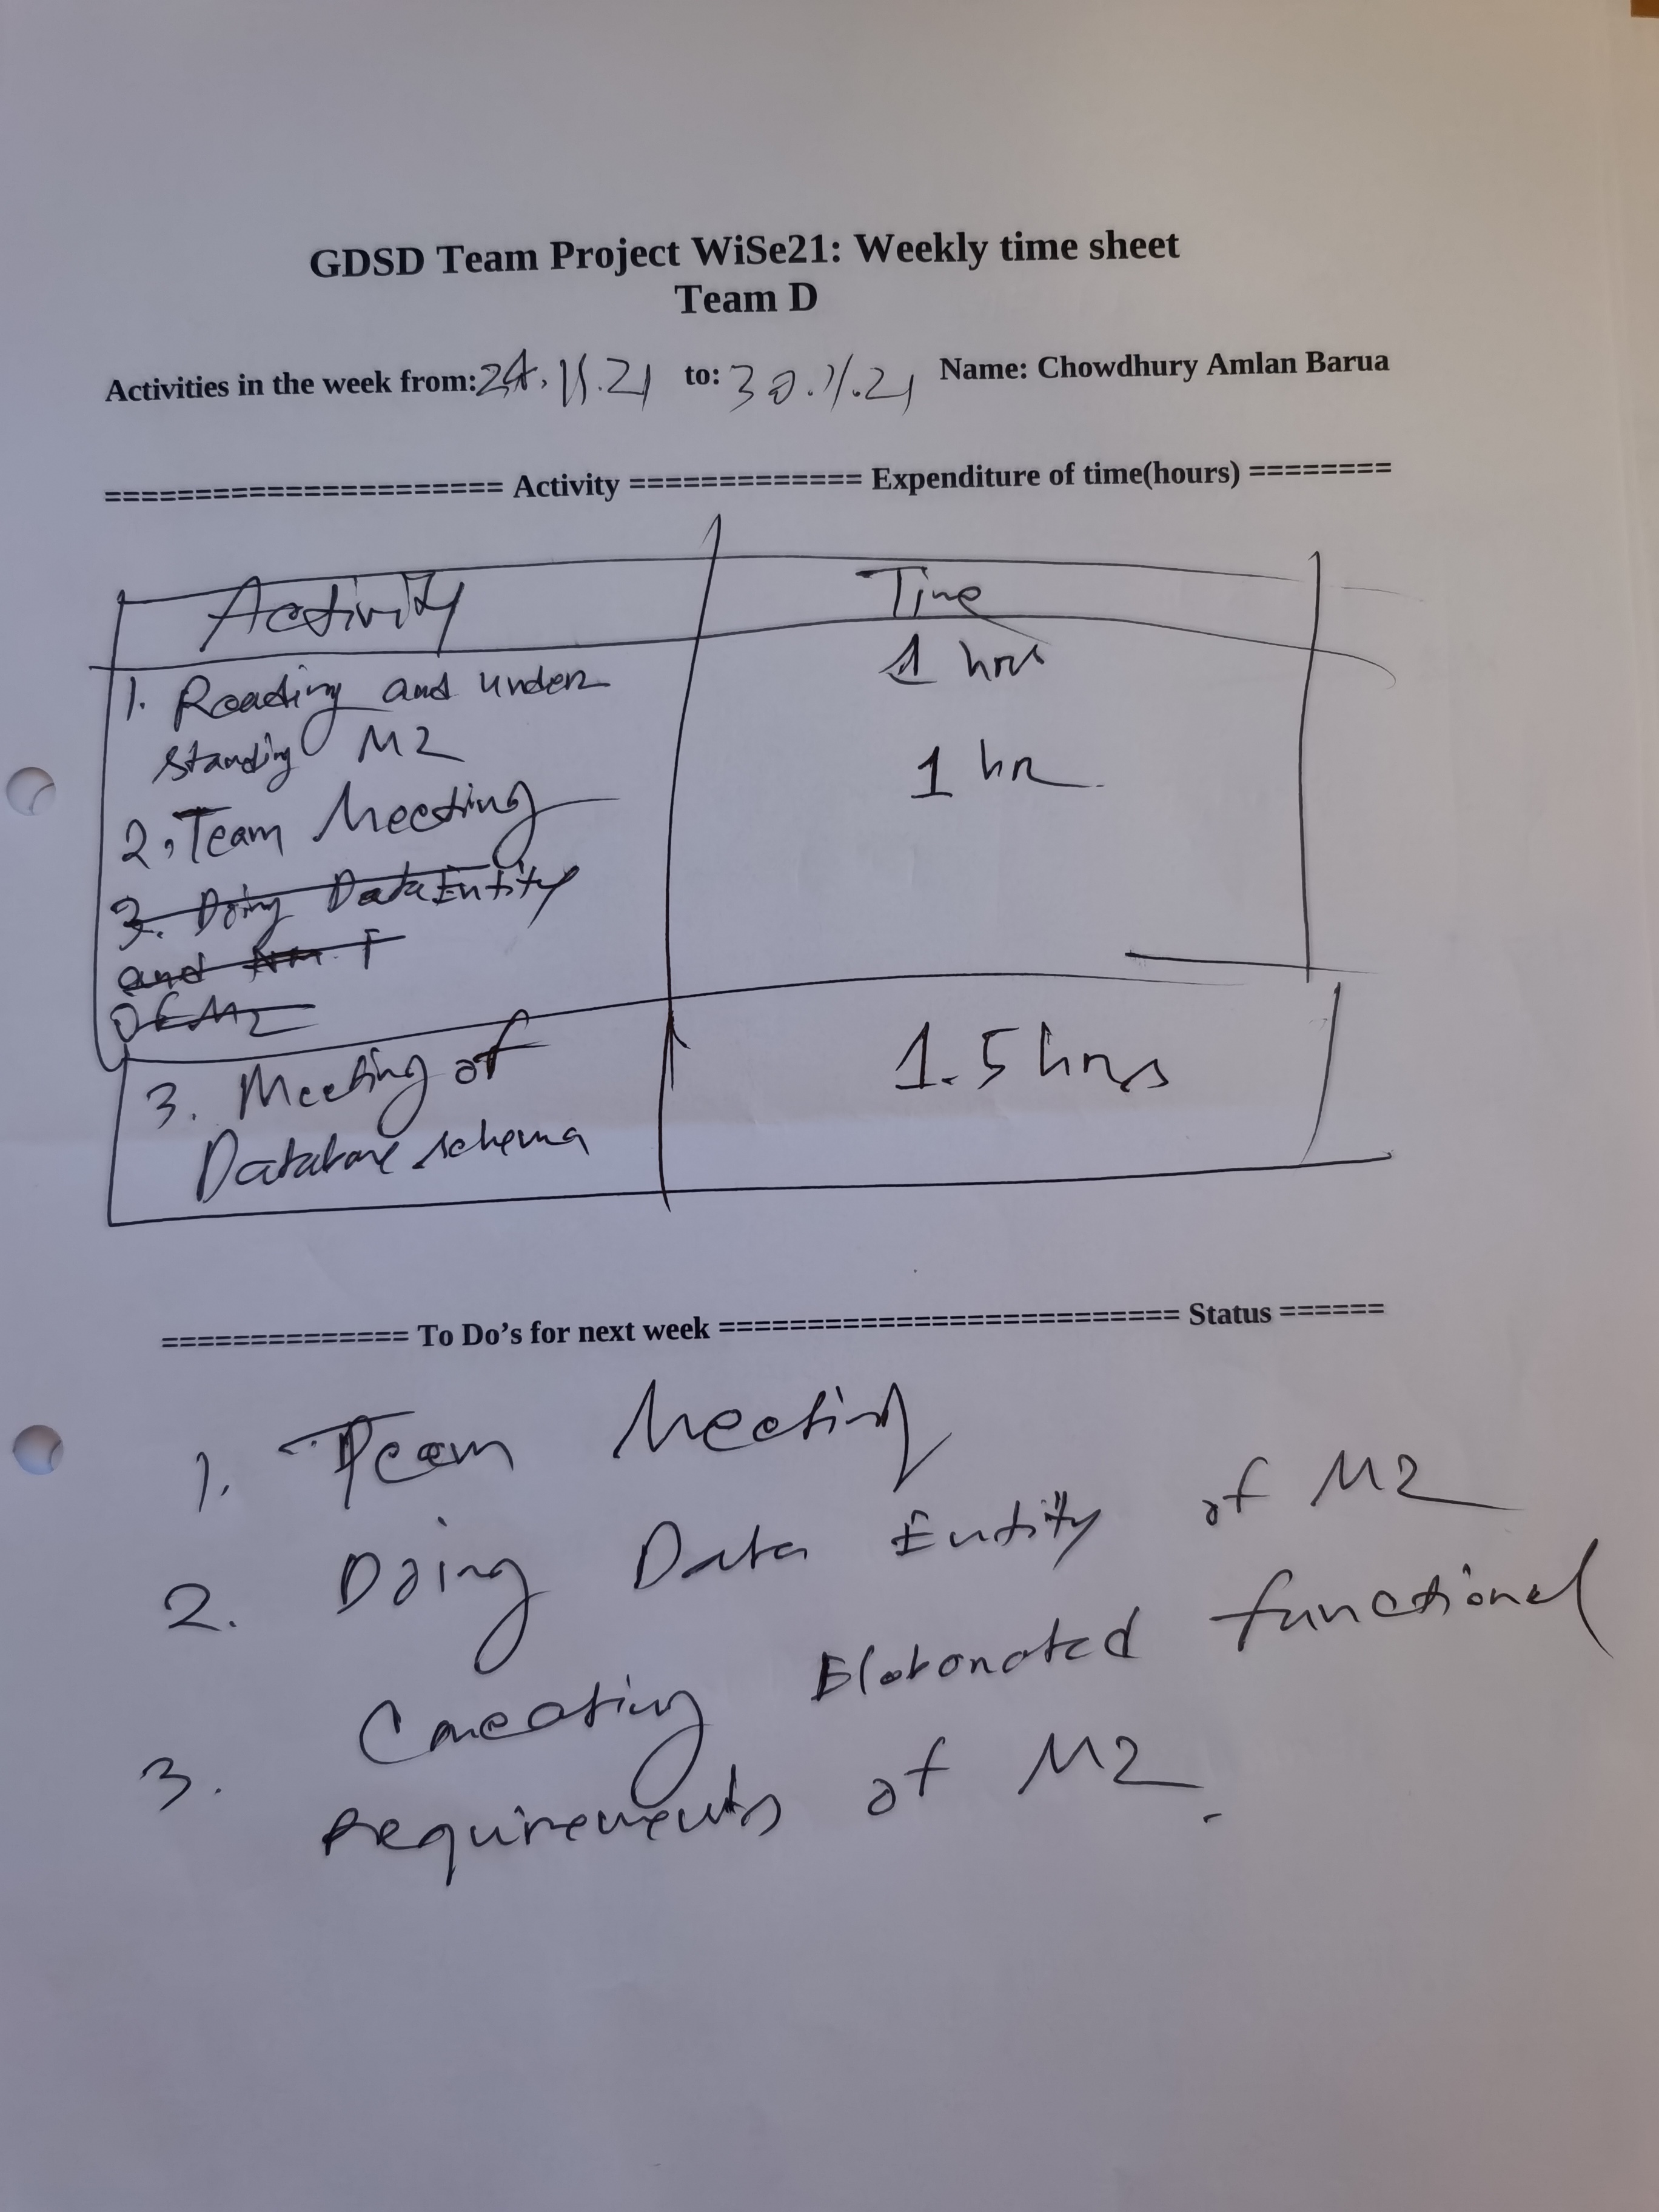 GDSD Team Project WiSe21: Weekly time sheet
Team D
Activities in the week from: 24.11.21 to: 30.11.21 Name: Chowdhury Amlan Barua
====================== Activity ============= Expenditure of time(hours) ========
Activity Time
1. Reading and under 1 hrs
standing M2
1 hr
2. Team Meeting
3. Doing Data Entity
and
of M2
3. Meeting of 1.5 hrs
Database schema
============== To Do’s for next week ========================== Status ======
1. Team Meeting
2. Doing Data Entity of M2
3. Creating Elaborated functional
requirements of M2.